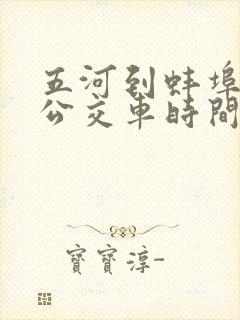 五河到蚌埠
公交車時間
寶寶淳-